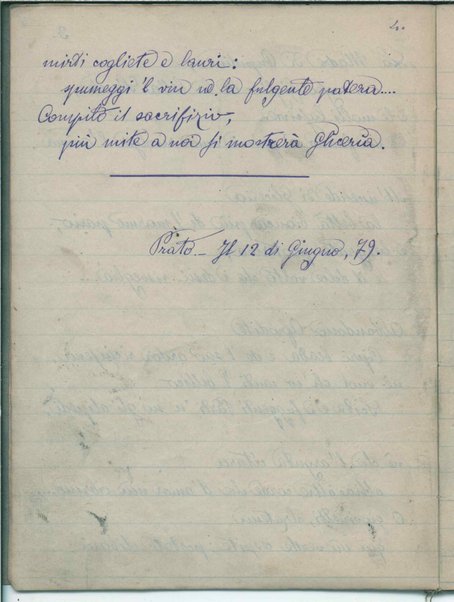 4.
mirti cogliete e lauri:
spumeggi 'l vin ne la fulgente patera....
Compito il sacrifizio,
più mite a noi si mostrerà Gliceria.
Prato – Il 12 di Giugno, 79.